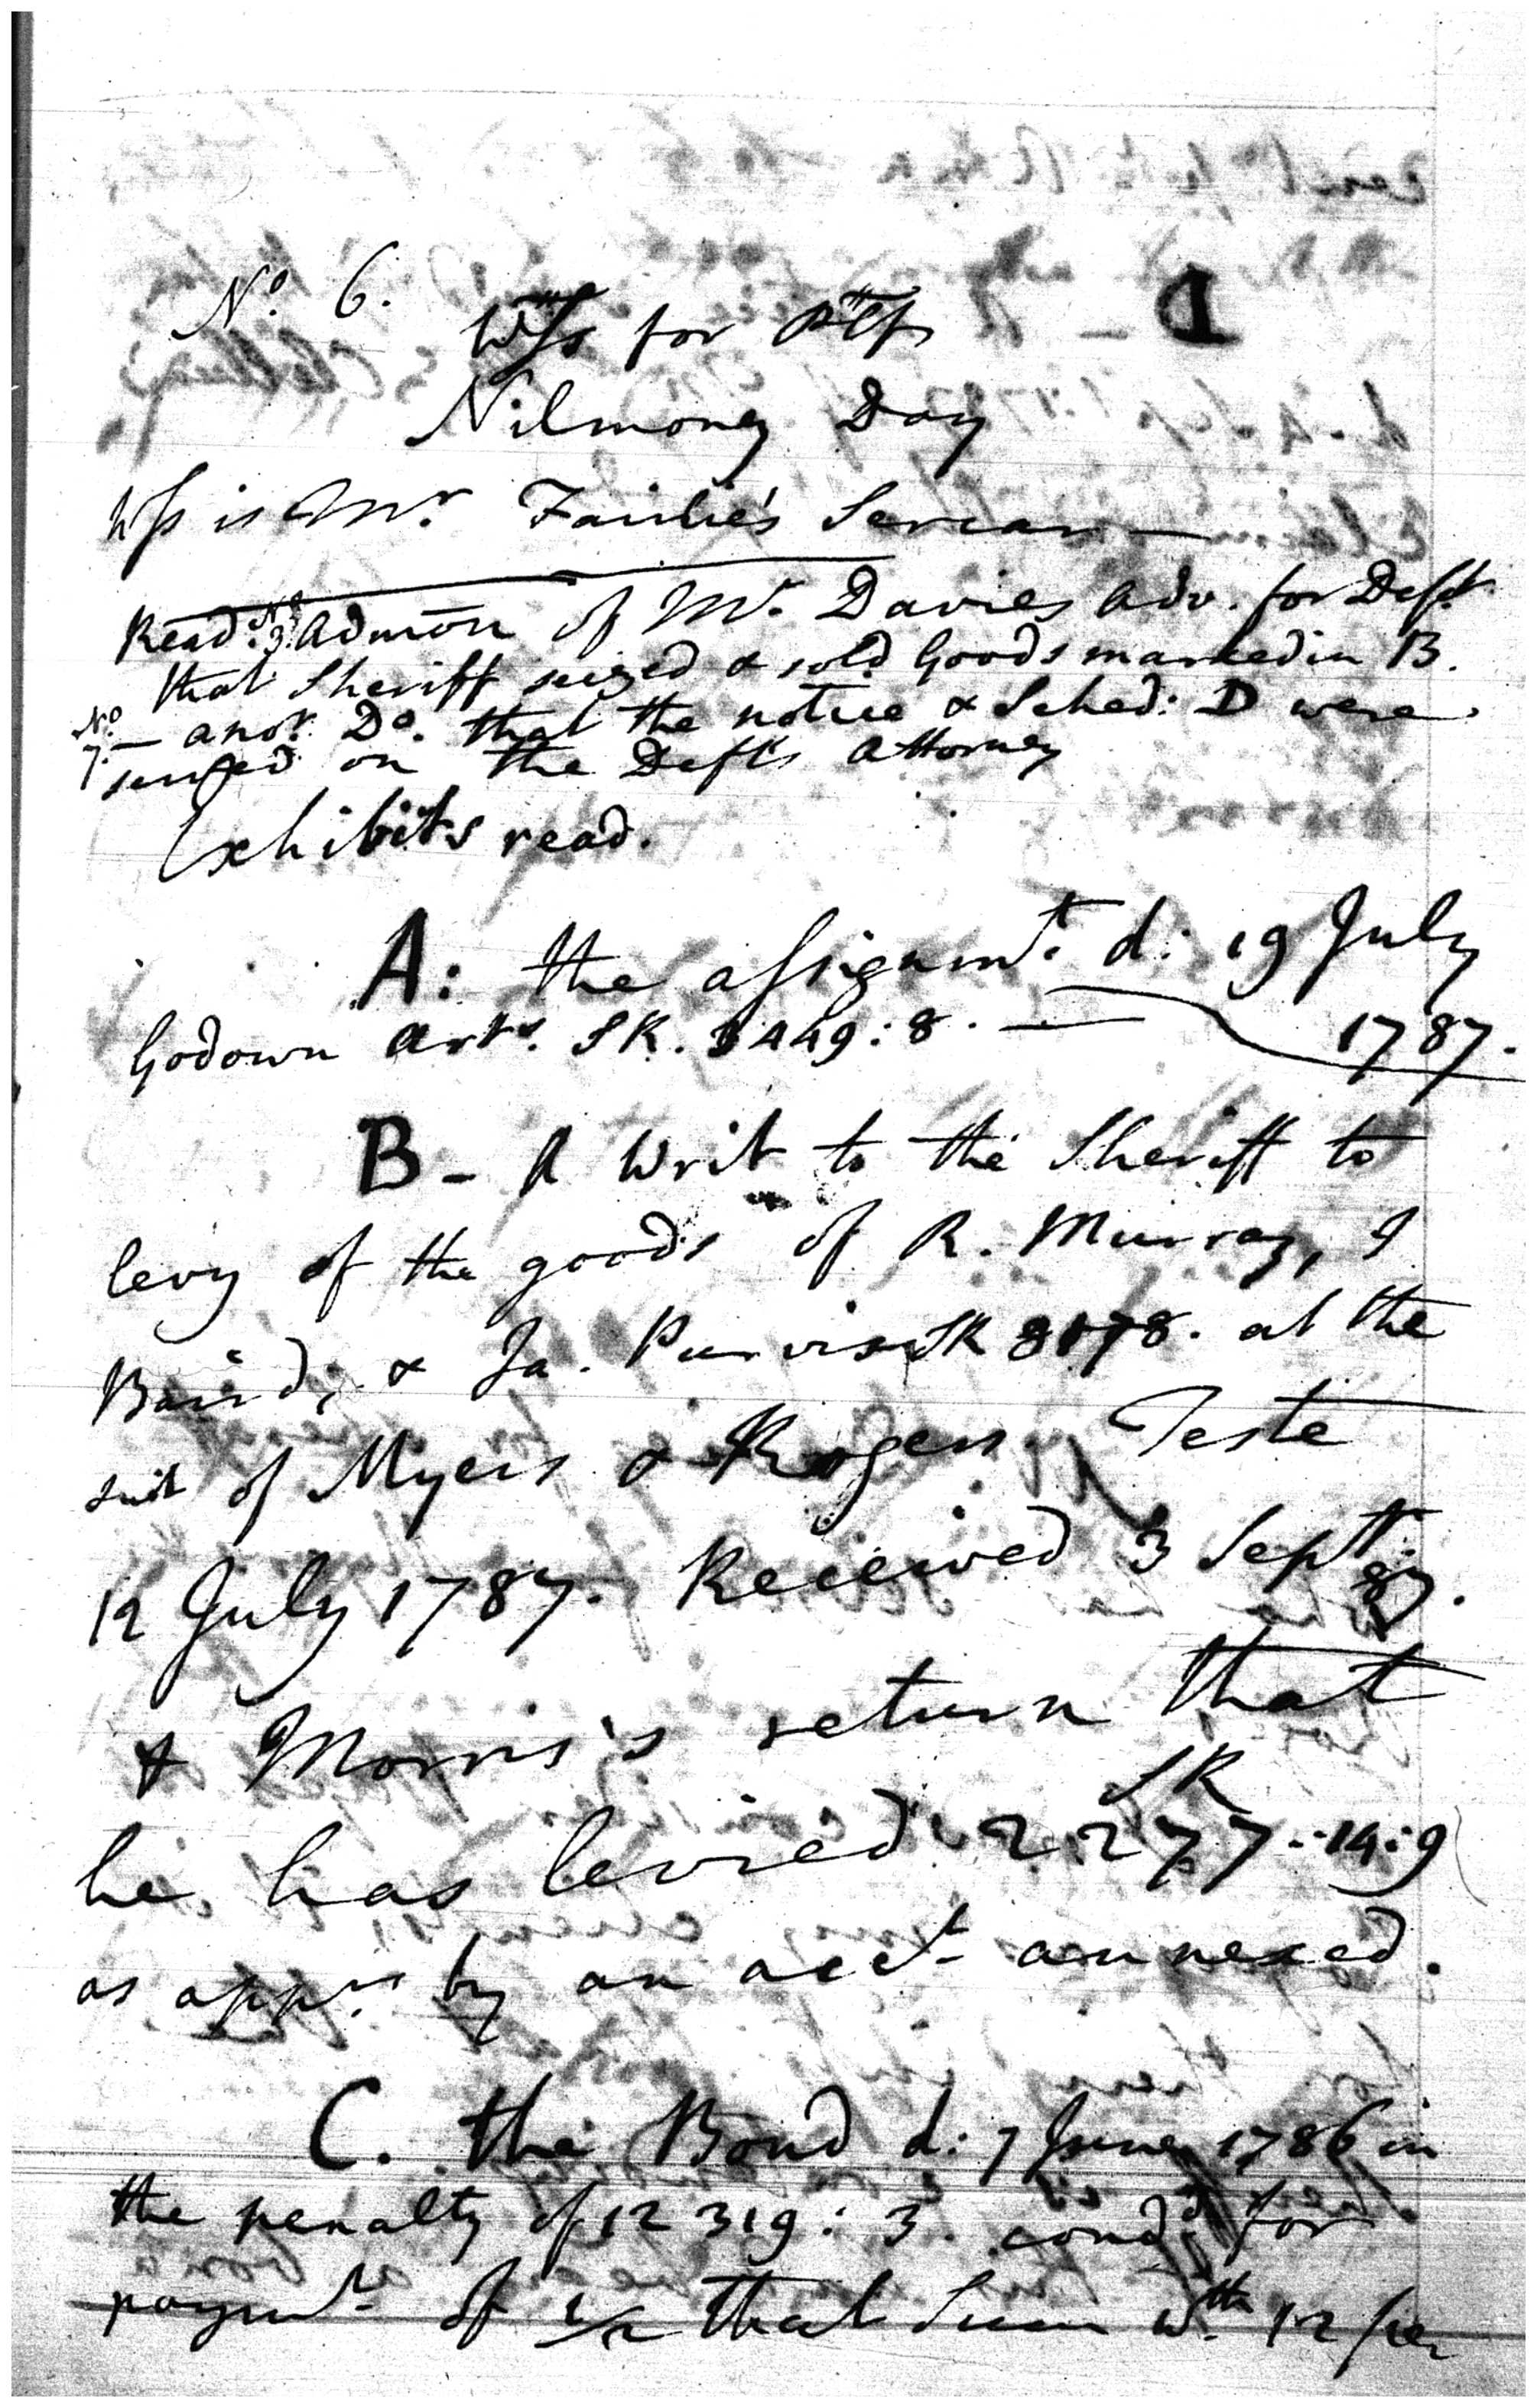 No. 6.
D
Wss for Pltf
Nilmoney Day
Wss is Mr. Fairlie's Sercar
Read: No 3. Admōn of Mr. Davies Adv. for Deft
that Sheriff seized & sold Goods marked in B.
No 7. — anor. Do. that the notice & Sched: D were
served on the Defts Attorney
Exhibits read.
A: the assignmt. d: 19 July
1787.
Godown Arts. SR. 3449:8. —
B - A Writ to the Sheriff to
levy of the goods of R. Murray, J
Baird, & Ja. Purvis SR 8178. at the
suit of Myers & Rogers Teste
12 July 1787. Received 3 Septr 87.
& Morris's return that
he has levied SR 2277..14:9
as apprs by an acct annexed.
C. the Bond d: 7 June 1786 in
the penalty of 12 319: 3. condd for
paymt of 1/2 that Sum wth. 12 per